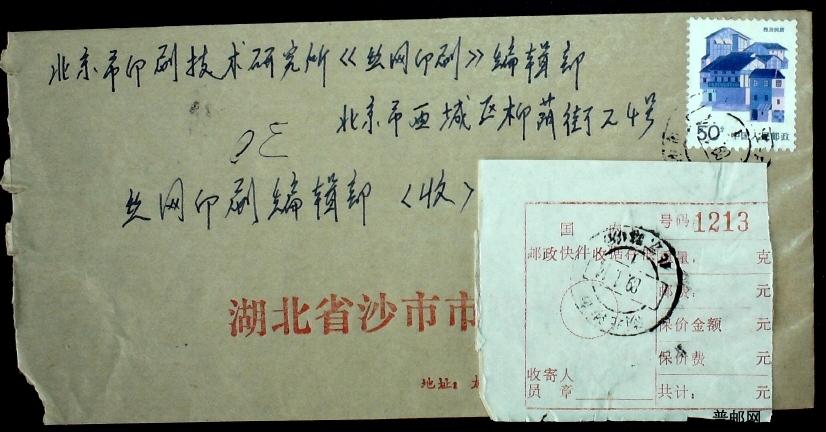 北京市印刷技术研究所《丝网印刷》编辑部
北京市西城区柳荫街元4号
丝网印刷编辑部（收）
湖北省沙市市
地址：
50分 中国人民邮政
国内
邮政快件收据存根
号码 1213
重量： 克
邮费： 元
保价金额 元
保价费 元
共计： 元
收寄人
员章
普邮网